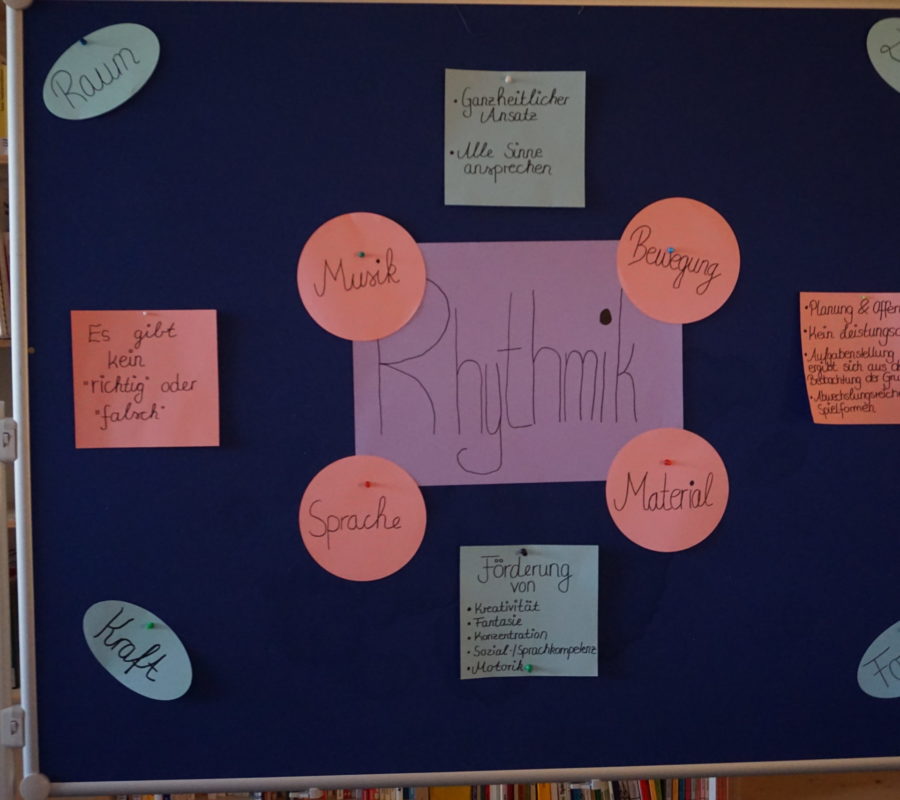 Raum
• Ganzheitlicher
Ansatz
• Alle Sinne
ansprechen
Musik
Bewegung
Rhythmik
Es gibt
kein
"richtig" oder
"falsch"
• Planung & Offen
• Kein Leistungsd
• Aufgabenstellung
ergibt sich aus
Beobachtung der Gru
• Abwechslungsreiche
Spielformen
Sprache
Material
Förderung
von
• Kreativität
• Fantasie
• Konzentration
• Sozial-/Sprachkompetenz
• Motorik
Kraft
Fo